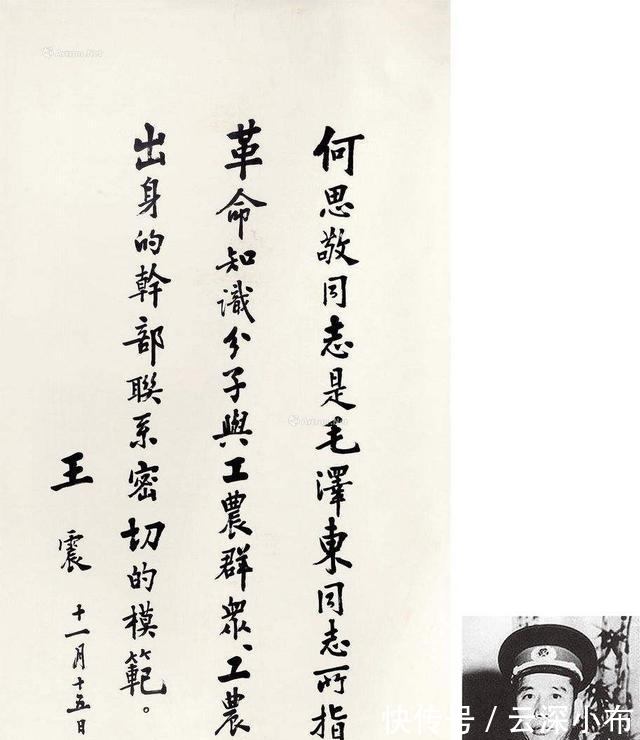 何思敬同志是毛澤東同志所指
革命知識分子與工農群衆、工農
出身的幹部聯系密切的模範。
王震
十一月十五日
Artron.Net
Artron.Net
快传号/云深小布